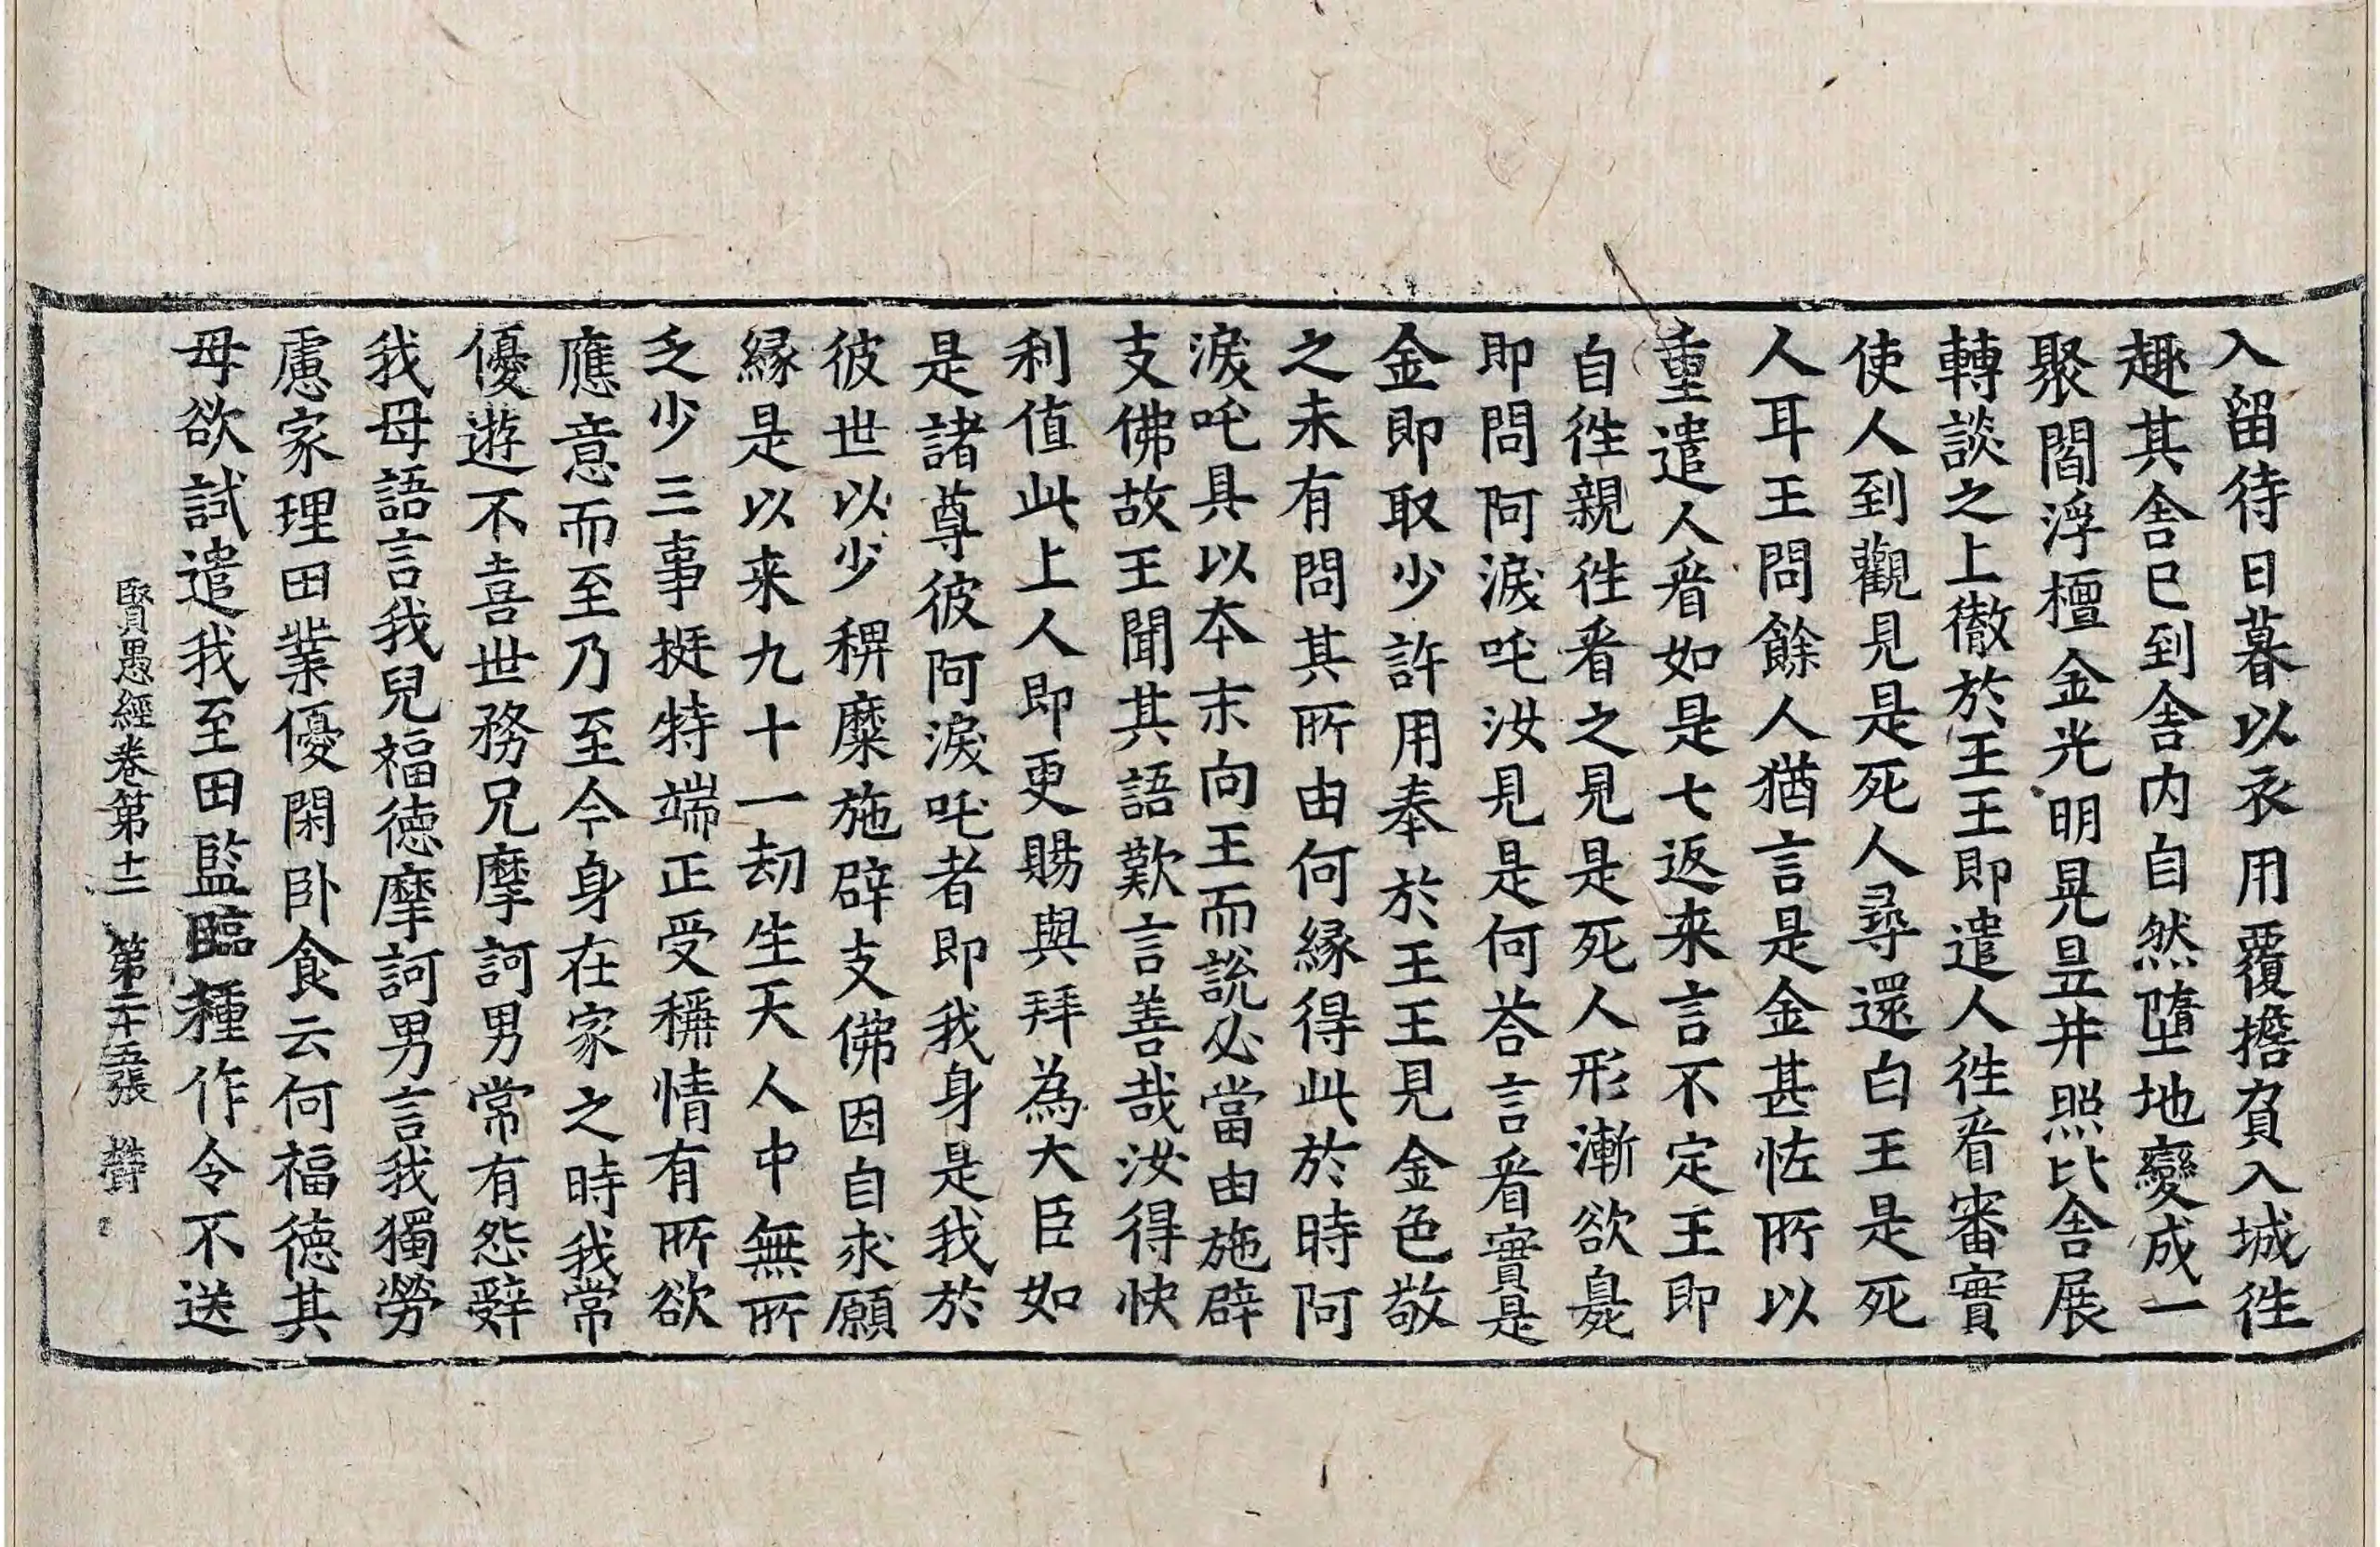 入留待日暮以衣用覆擔負入城徃
趣其舎巳到舎内自然墮地變成一
聚閻浮檀金光明晃昱并照比舎展
轉談之上徹於王王即遣人徃㸔審實
使人到觀見是死人尋還白王是死
人耳王問餘人猶言是金甚恠所以
重遣人㸔如是七返来言不定王即
自徃親徃㸔之見是死人形漸欲臰
即問阿淚吒汝見是何荅言㸔實是
金即取少許用奉於王王見金色敬
之未有問其所由何縁得此於時阿
淚吒具以本末向王而說必當由施辟
支佛故王聞其語歎言善哉汝得快
利值此上人即更賜與拜為大臣如
是諸尊彼阿淚吒者即我身是我於
彼世以少稗糜施辟支佛因自求願
縁是以来九十一劫生天人中無所
乏少三事挺特端正受稱情有所欲
應意而至乃至今身在家之時我常
優遊不喜世務兄摩訶男常有怨辭
我母語言我兒福德摩訶男言我獨勞
慮家理田業優閑卧食云何福德其
母欲試遣我至田監臨種作令不送
賢愚經卷第十二 第二十五張